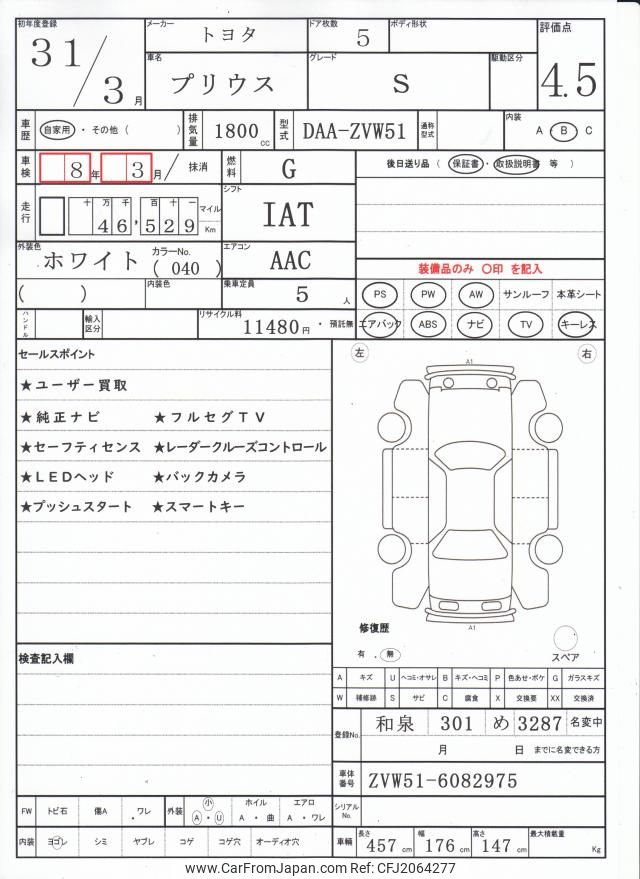 初年度登録 31/3月
メーカー トヨタ ドア枚数 5 ボディ形状
車名 プリウス グレード S 駆動区分
評価点 4.5
車歴 自家用 ・ その他 ( ) 排気量 1800 cc 型式 DAA-ZVW51 通称型式 内装 A ・ B C
車検 8年 3月/ 抹消 燃料 G 後日送り品 ( 保証書 ・ 取扱説明書 等 )
走行 十 万 千 百 十 一 46,529 マイル Km シフト IAT
外装色 ホワイト カラーNo. ( 040 ) エアコン AAC
装備品のみ 〇印 を記入
( ) 内装色 乗車定員 5 人
PS PW AW サンルーフ 本革シート
ハンドル 輸入区分 リサイクル料 11480円 ・ 預託無
エアバック ABS ナビ TV キーレス
セールスポイント
★ユーザー買取
★純正ナビ ★フルセグTV
★セーフティセンス ★レーダークルーズコントロール
★LEDヘッド ★バックカメラ
★プッシュスタート ★スマートキー
左 右
A1
A1
修復歴
有 . 無
スペア
検査記入欄
A キズ U ヘコミ・オサレ B キズ・ヘコミ P 色あせ・ボケ G ガラスキズ
W 補修跡 S サビ C 腐食 X 交換要 XX 交換済
登録No. 和泉 301 め 3287 名変中
月 日 までに名変できる方
車体番号 ZVW51-6082975
シリアルNo.
FW トビ石 傷A ・ワレ 外装 小 A ・ U ホイル A ・ 曲 エアロ A ・ ワレ
内装 ヨゴレ シミ ヤブレ コゲ コゲ穴 オーディオ穴
車輛 長さ 457 cm 幅 176 cm 高さ 147 cm 最大積載量 Kg
www.CarFromJapan.com Ref: CFJ2064277